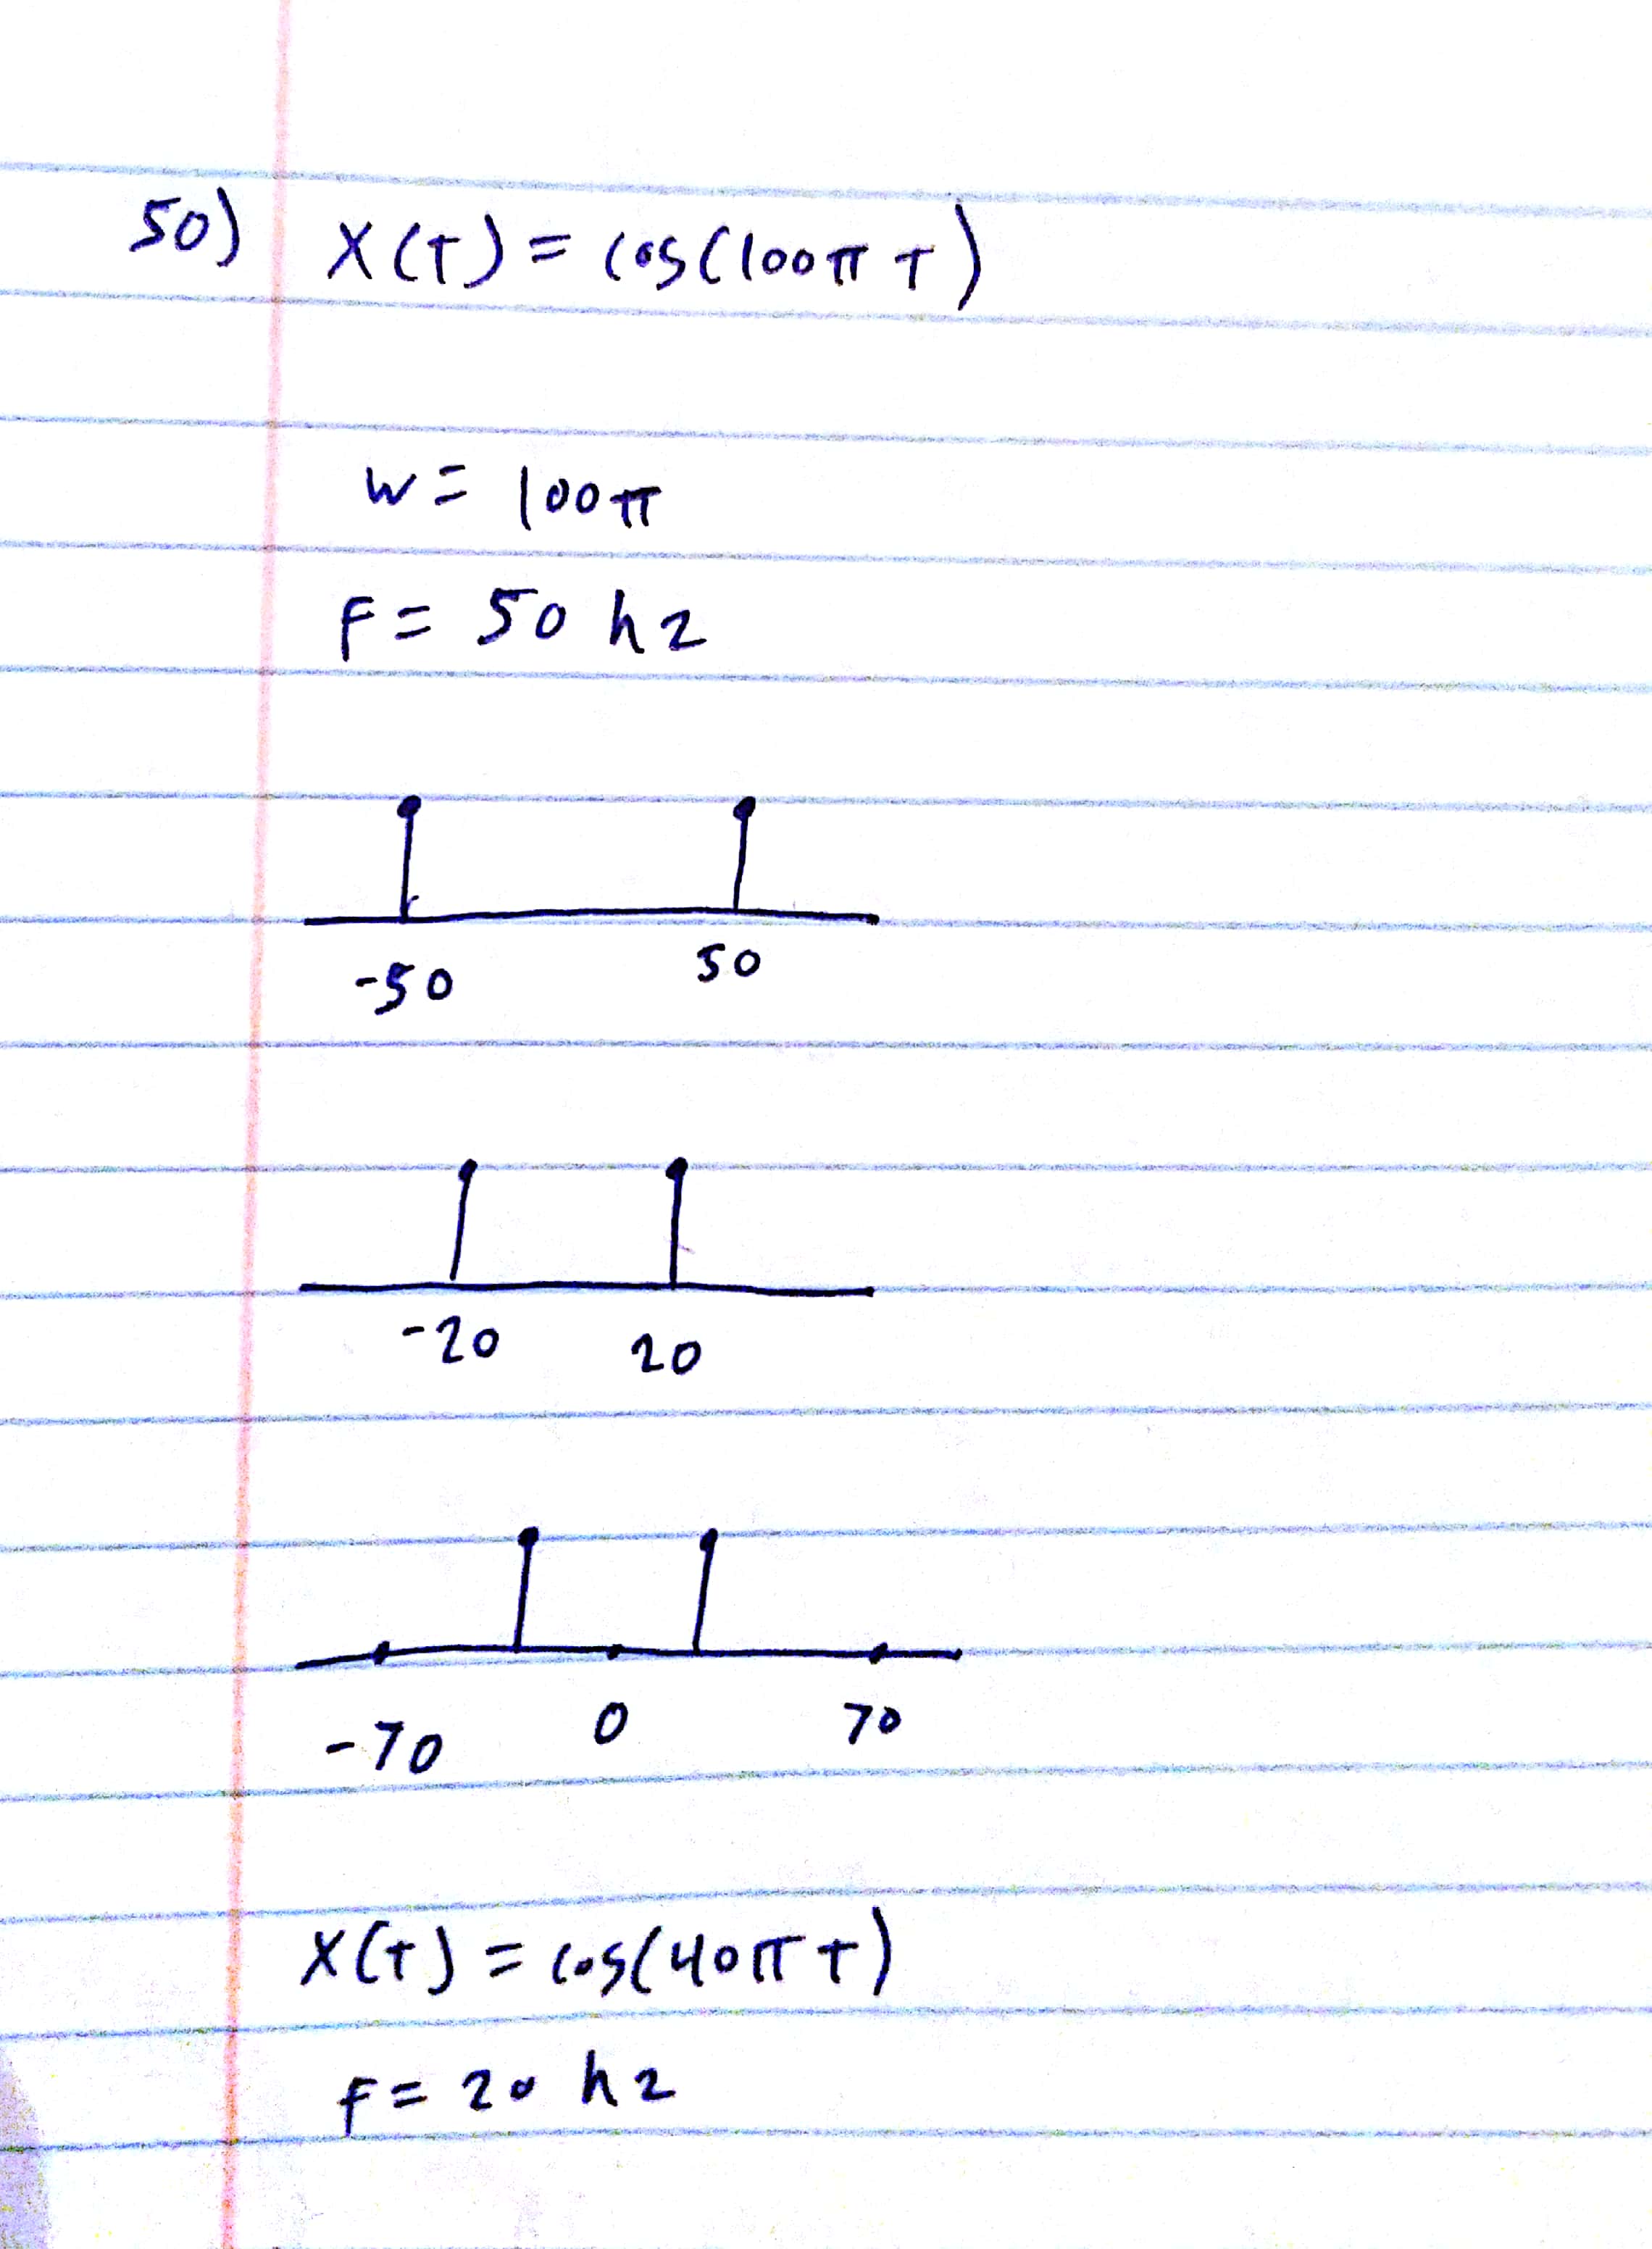 50) X(T) = cos(100π T)
w = 100π
F = 50 hz
-50 50
-20 20
-70 0 70
X(T) = cos(40π T)
F = 20 hz